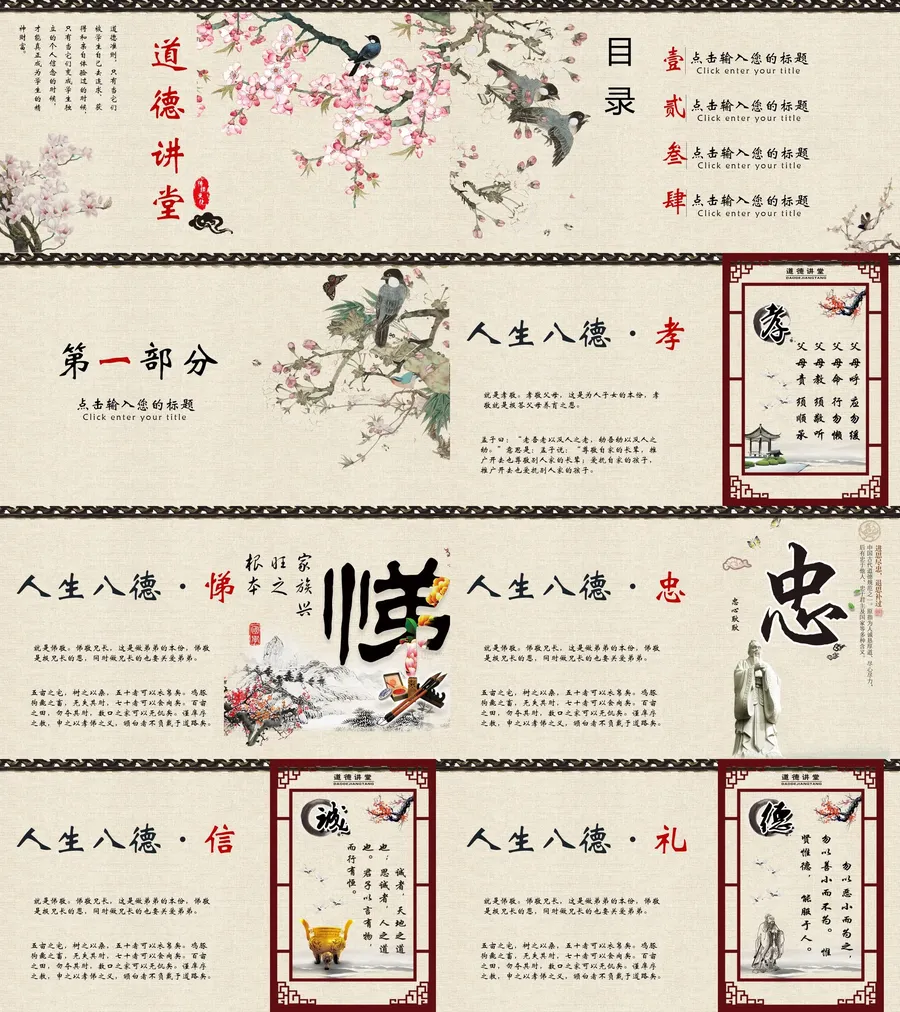 道德准则，只有当它们
被学生自己去追求、获
得和亲自体验过的时候，
只有当它们变成学生独
立的个人信念的时候，
才能真正成为学生的精
神财富。
道德讲堂
目录
壹 点击输入您的标题
Click enter your title
贰 点击输入您的标题
Click enter your title
叁 点击输入您的标题
Click enter your title
肆 点击输入您的标题
Click enter your title
第一部分
点击输入您的标题
Click enter your title
人生八德·孝
就是孝敬。孝敬父母，这是为人子女的本份，孝
敬就是报答父母养育之恩。
孟子曰：“老吾老以及人之老，幼吾幼以及人之
幼。”意思是：孟子说：“尊敬自家的长辈，推
广开去也尊敬别人家的长辈；爱抚自家的孩子，
推广开去也爱抚别人家的孩子。
道德讲堂
DAODEJIANGTANG
孝
父母呼 应勿缓
父母命 行勿懒
父母教 须敬听
父母责 须顺承
人生八德·悌
就是悌敬。悌敬兄长，这是做弟弟的本份，悌敬
是报兄长的恩，同时做兄长的也要关爱弟弟。
五亩之宅，树之以桑，五十者可以衣帛矣。鸡豚
狗彘之畜，无失其时，七十者可以食肉矣。百亩
之田，勿夺其时，数口之家可以无饥矣。谨庠序
之教，申之以孝悌之义，颁白者不负戴于道路矣。
家族兴
旺之
根本
悌
人生八德·忠
就是悌敬。悌敬兄长，这是做弟弟的本份，悌敬
是报兄长的恩，同时做兄长的也要关爱弟弟。
五亩之宅，树之以桑，五十者可以衣帛矣。鸡豚
狗彘之畜，无失其时，七十者可以食肉矣。百亩
之田，勿夺其时，数口之家可以无饥矣。谨庠序
之教，申之以孝悌之义，颁白者不负戴于道路矣。
进思尽忠，退思补过
中国古代道德规范之一。原指为人诚恳厚道、尽心尽力，
后有忠于他人、忠于君主及国家等多种含义。
忠
忠心耿耿
人生八德·信
就是悌敬。悌敬兄长，这是做弟弟的本份，悌敬
是报兄长的恩，同时做兄长的也要关爱弟弟。
五亩之宅，树之以桑，五十者可以衣帛矣。鸡豚
狗彘之畜，无失其时，七十者可以食肉矣。百亩
之田，勿夺其时，数口之家可以无饥矣。谨庠序
之教，申之以孝悌之义，颁白者不负戴于道路矣。
道德讲堂
DAODEJIANGTANG
诚
诚者，天地之道
也；思诚者，人之道
也。君子以言有物，
而行有恒。
人生八德·礼
就是悌敬。悌敬兄长，这是做弟弟的本份，悌敬
是报兄长的恩，同时做兄长的也要关爱弟弟。
五亩之宅，树之以桑，五十者可以衣帛矣。鸡豚
狗彘之畜，无失其时，七十者可以食肉矣。百亩
之田，勿夺其时，数口之家可以无饥矣。谨庠序
之教，申之以孝悌之义，颁白者不负戴于道路矣。
道德讲堂
DAODEJIANGTANG
德
勿以恶小而为之，
勿以善小而不为。惟
贤惟德，能服于人。